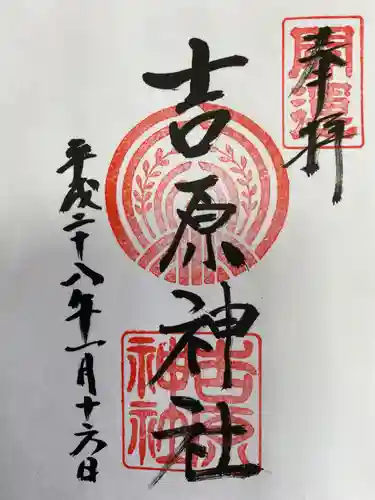 奉拝
開運
吉原神社
吉原
神社
平成二十八年一月十六日